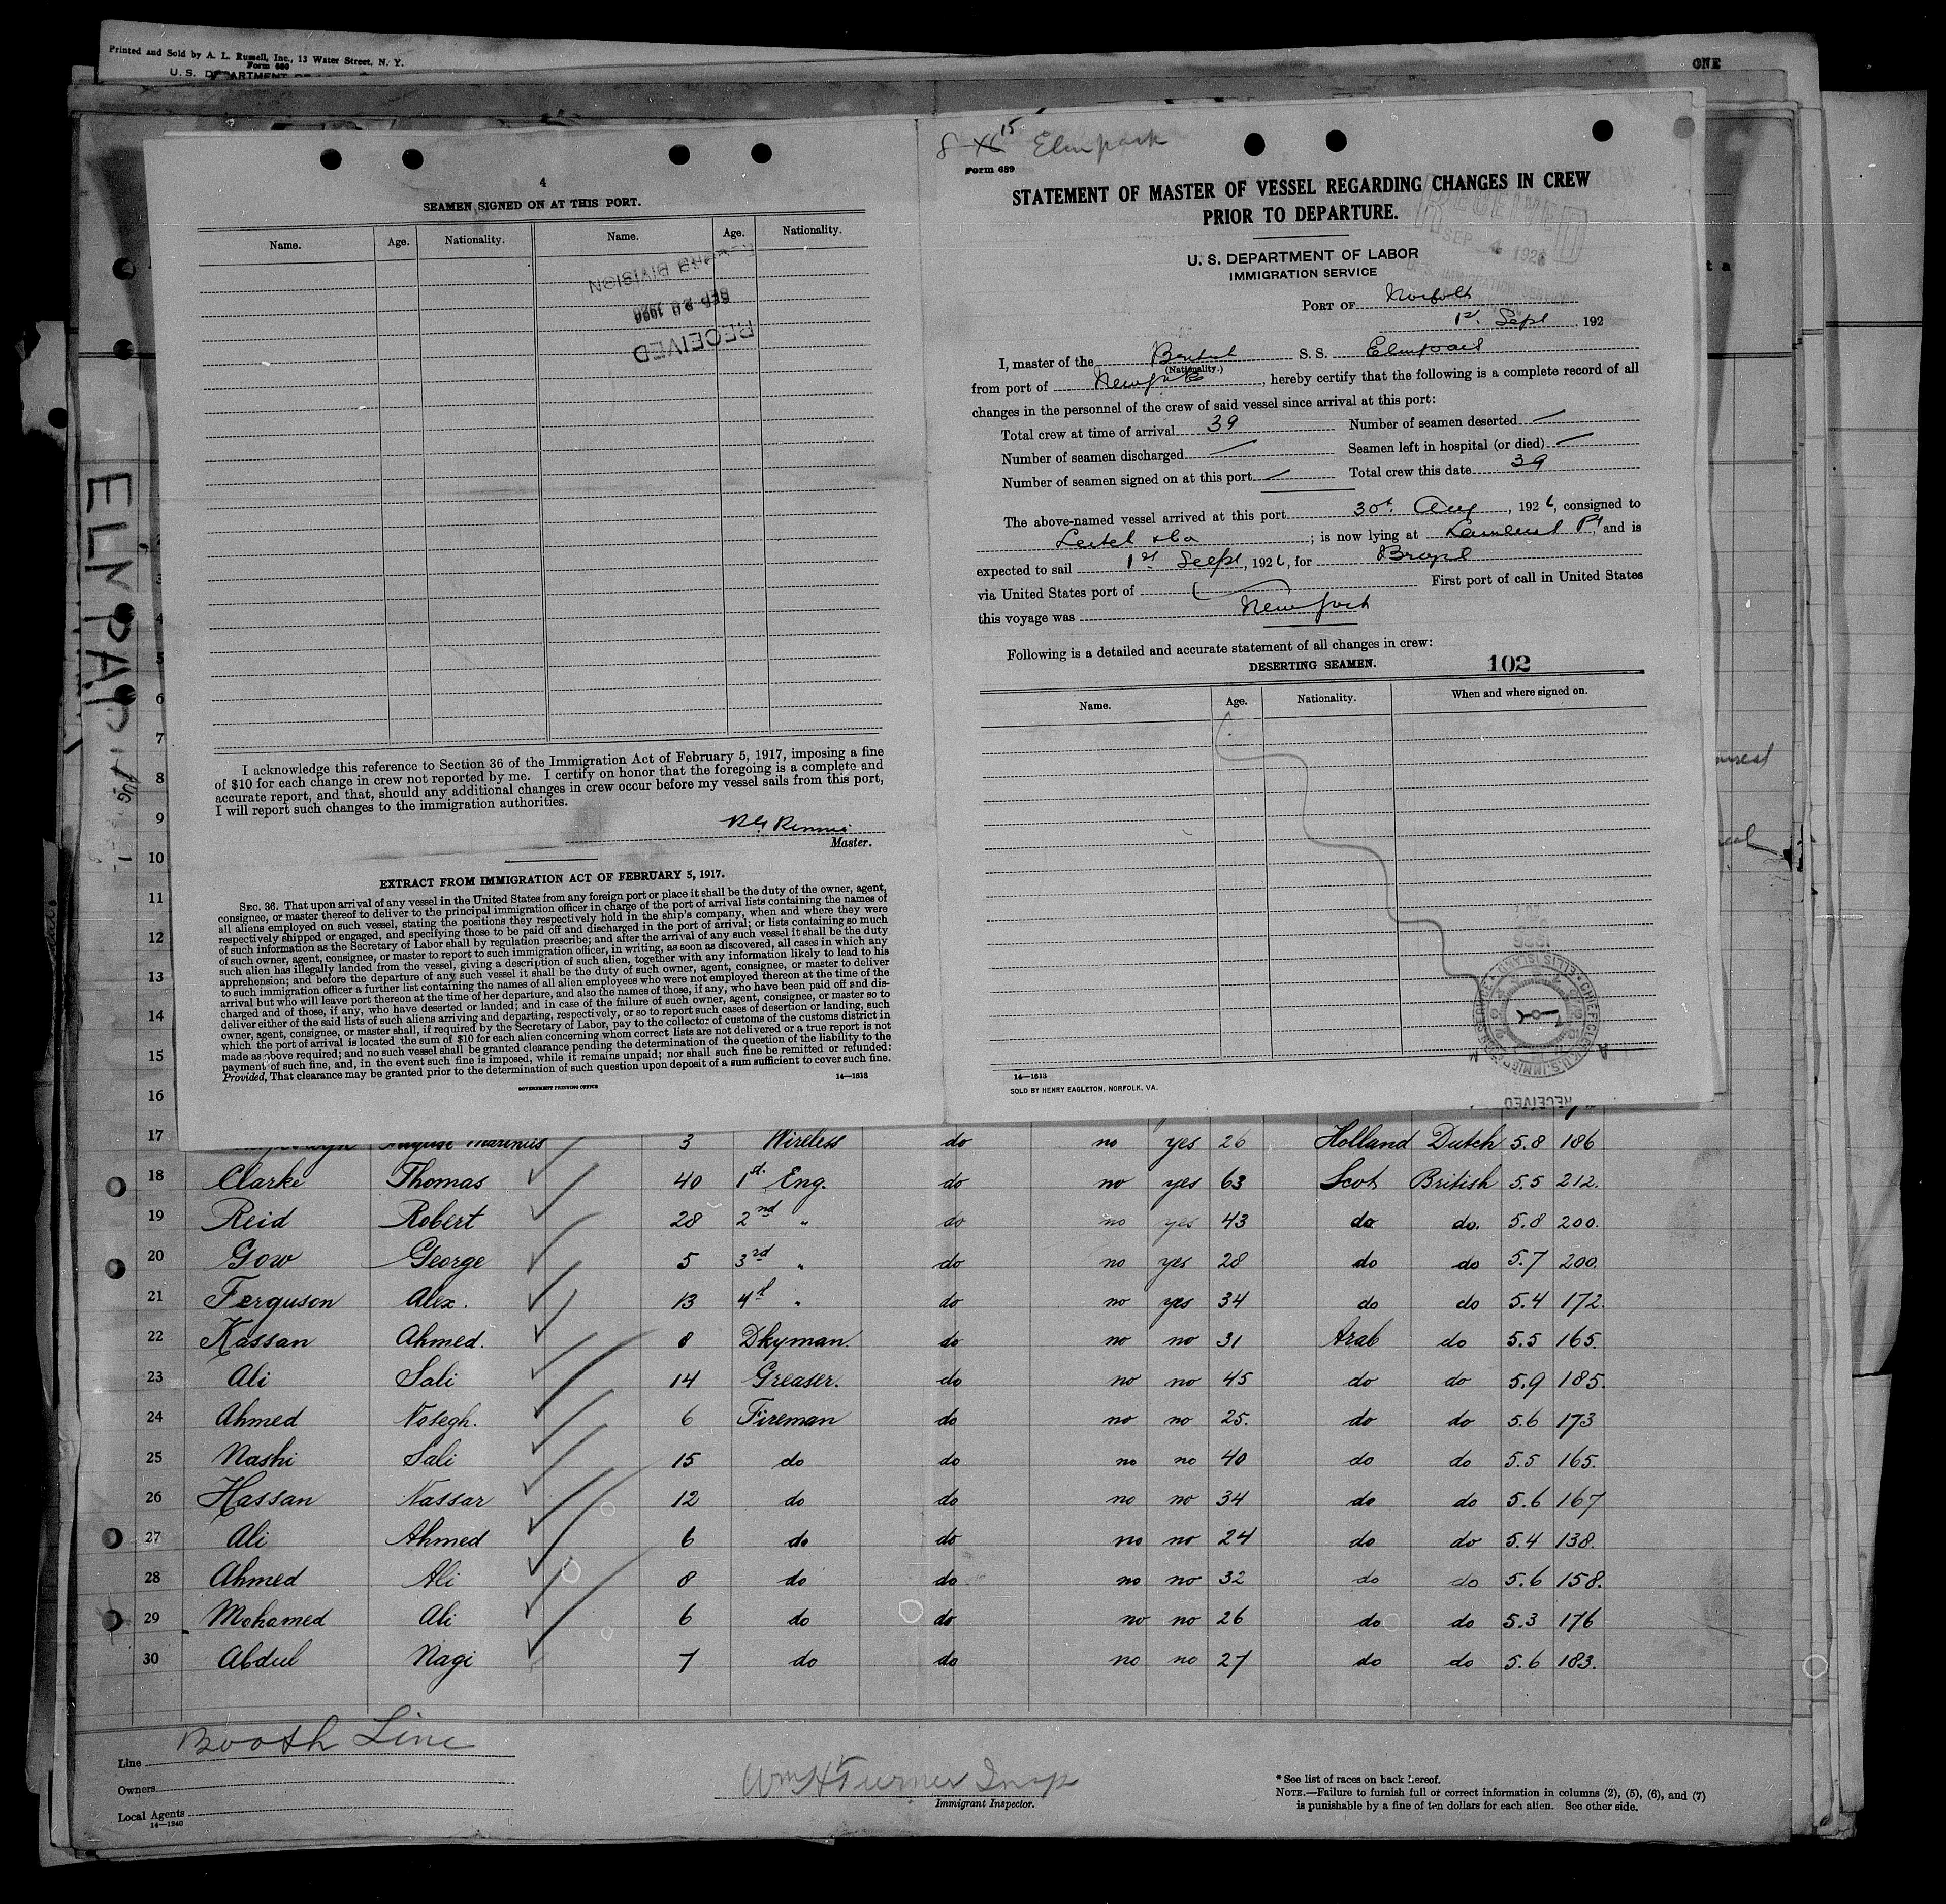 Printed and Sold by A. L. Russell, Inc., 13 Water Street, N. Y.
Form 680
U. S. DEPARTMENT
ONE
ELMPARK
4
SEAMEN SIGNED ON AT THIS PORT.
Name. Age. Nationality. Name. Age. Nationality.
DIVISION
SEP 20 1926
RECEIVED
I acknowledge this reference to Section 36 of the Immigration Act of February 5, 1917, imposing a fine
of $10 for each change in crew not reported by me. I certify on honor that the foregoing is a complete and
accurate report, and that, should any additional changes in crew occur before my vessel sails from this port,
I will report such changes to the immigration authorities.
Rennie
Master.
EXTRACT FROM IMMIGRATION ACT OF FEBRUARY 5, 1917.
SEC. 36. That upon arrival of any vessel in the United States from any foreign port or place it shall be the duty of the owner, agent,
consignee, or master thereof to deliver to the principal immigration officer in charge of the port of arrival lists containing the names of
all aliens employed on such vessel, stating the positions they respectively hold in the ship's company, when and where they were
respectively shipped or engaged, and specifying those to be paid off and discharged in the port of arrival; or lists containing so much
of such information as the Secretary of Labor shall by regulation prescribe; and after the arrival of any such vessel it shall be the duty
of such owner, agent, consignee, or master to report to such immigration officer, in writing, as soon as discovered, all cases in which any
such alien has illegally landed from the vessel, giving a description of such alien, together with any information likely to lead to his
apprehension; and before the departure of any such vessel it shall be the duty of such owner, agent, consignee, or master to deliver
to such immigration officer a further list containing the names of all alien employees who were not employed thereon at the time of the
arrival but who will leave port thereon at the time of her departure, and also the names of those, if any, who have been paid off and dis-
charged and of those, if any, who have deserted or landed; and in case of the failure of such owner, agent, consignee, or master so to
deliver either of the said lists of such aliens arriving and departing, respectively, or so to report such cases of desertion or landing, such
owner, agent, consignee, or master shall, if required by the Secretary of Labor, pay to the collector of customs of the customs district in
which the port of arrival is located the sum of $10 for each alien concerning whom correct lists are not delivered or a true report is not
made as above required; and no such vessel shall be granted clearance pending the determination of the question of the liability to the
payment of such fine, and, in the event such fine is imposed, while it remains unpaid; nor shall such fine be remitted or refunded:
Provided, That clearance may be granted prior to the determination of such question upon deposit of a sum sufficient to cover such fine.
14—1613
GOVERNMENT PRINTING OFFICE
8 15 Elmpark
Form 689
STATEMENT OF MASTER OF VESSEL REGARDING CHANGES IN CREW
PRIOR TO DEPARTURE.
RECEIVED
SEP 4 1926
U. S. IMMIGRATION SERVICE
U. S. DEPARTMENT OF LABOR
IMMIGRATION SERVICE
PORT OF Norfolk
1st. Sept , 192
I, master of the British S. S. Elmpark
(Nationality.)
from port of New York , hereby certify that the following is a complete record of all
changes in the personnel of the crew of said vessel since arrival at this port:
Total crew at time of arrival 39 Number of seamen deserted —
Number of seamen discharged — Seamen left in hospital (or died) —
Number of seamen signed on at this port — Total crew this date 39
The above-named vessel arrived at this port 30t. Aug , 1926, consigned to
; is now lying at Lambert Pt and is
expected to sail 1st Sept , 1926, for Brazil
via United States port of First port of call in United States
this voyage was New York
Following is a detailed and accurate statement of all changes in crew:
DESERTING SEAMEN. 102
Name. Age. Nationality. When and where signed on.
CHIEF CLERK U.S. IMMIGRATION SERVICE ELLIS ISLAND
RECEIVED
14—1613
SOLD BY HENRY EAGLETON, NORFOLK, VA.
3
4
5
6
7
8
9
10
11
12
13
14
15
16
17 August Marinus 3 Wireless do no yes 26 Holland Dutch 5.8 186
18 Clarke Thomas 40 1st. Eng. do no yes 63 Scot British 5.5 212.
19 Reid Robert 28 2nd " do no yes 43 do do. 5.8 200.
20 Gow George 5 3rd " do no yes 28 do do 5.7 200.
21 Ferguson Alex. 13 4th " do no yes 34 do do 5.4 172.
22 Kassan Ahmed. 8 Dkyman. do no no 31 Arab do 5.5 165.
23 Ali Sali 14 Greaser. do no no 45 do do 5.9 185.
24 Ahmed Nosegh. 6 Fireman do no no 25. do do 5.6 173
25 Nashi Sali 15 do do no no 40 do do 5.5 165.
26 Hassan Nassar 12 do do no no 34 do do 5.6 167
27 Ali Ahmed 6 do do no no 24 do do 5.4 138.
28 Ahmed Ali 8 do do no no 32 do do 5.6 158.
29 Mohamed Ali 6 do do no no 26 do do 5.3 176
30 Abdul Nagi 7 do do no no 27 do do 5.6 183.
Line Booth Line
Owners
Local Agents
14—1240
Wm H Turner Insp
Immigrant Inspector.
* See list of races on back hereof.
NOTE.—Failure to furnish full or correct information in columns (2), (5), (6), and (7)
is punishable by a fine of ten dollars for each alien. See other side.